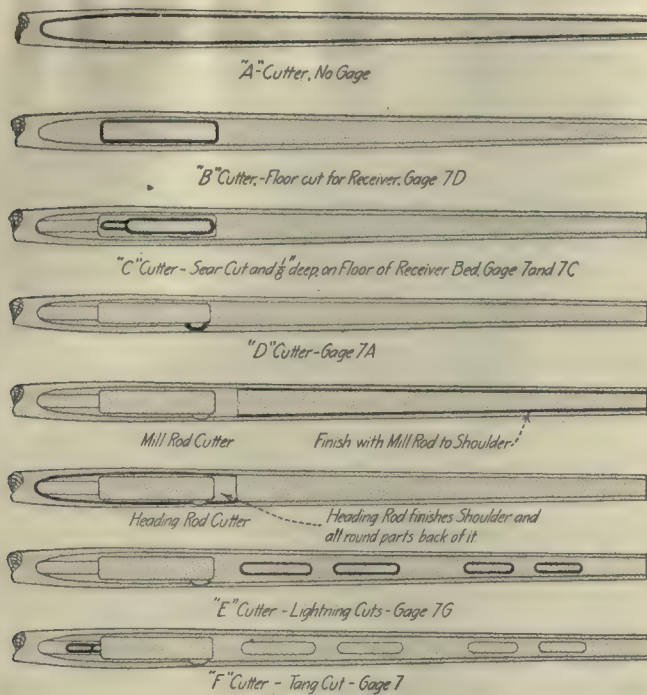 "A" Cutter, No Gage
"B" Cutter,-Floor cut for Receiver. Gage 7D
"C" Cutter - Sear Cut and 1/8" deep, on Floor of Receiver Bed. Gage 7 and 7C
"D" Cutter-Gage 7A
Mill Rod Cutter
Finish with Mill Rod to Shoulder
Heading Rod Cutter
Heading Rod finishes Shoulder and
all round parts back of it
"E" Cutter - Lightning Cuts - Gage 7G
"F" Cutter - Tang Cut - Gage 7